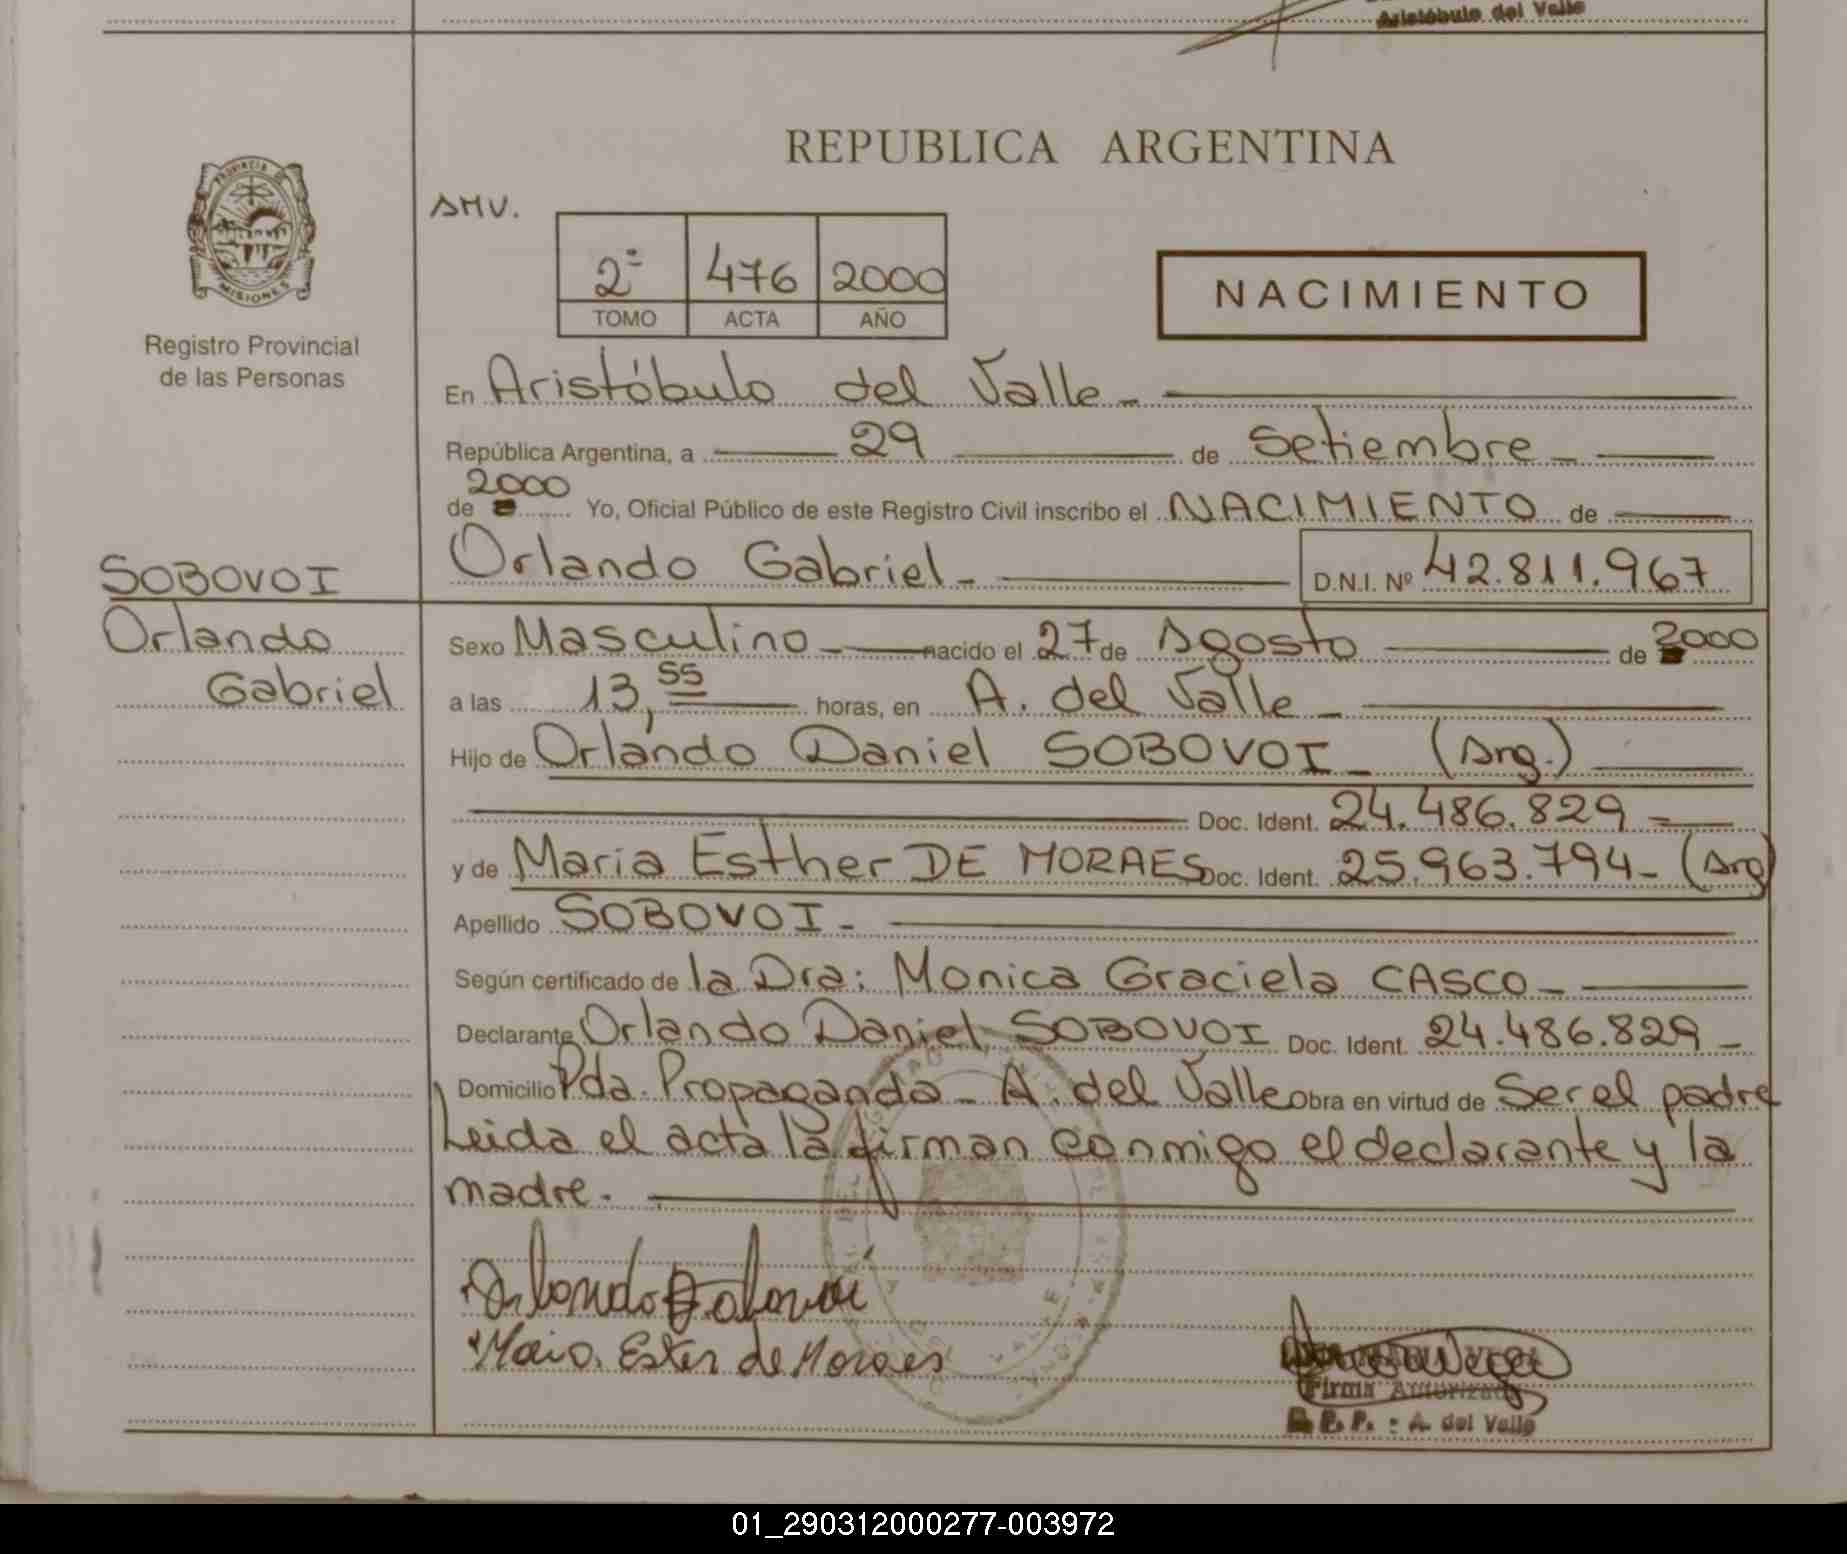 Aristóbulo del Valle
REPUBLICA ARGENTINA
PROVINCIA DE
MISIONES
Registro Provincial
de las Personas
AMV.
2º 476 2000
TOMO ACTA AÑO
NACIMIENTO
En Aristóbulo del Valle -
República Argentina, a 29 de Setiembre -
2000
de Yo, Oficial Público de este Registro Civil inscribo el NACIMIENTO de
SOBOVOI
Orlando Gabriel - D.N.I. Nº 42.811.967
Orlando
Gabriel
Sexo Masculino - nacido el 27 de Agosto de 2000
a las 13,55 horas, en A. del Valle -
Hijo de Orlando Daniel SOBOVOI - (Arg.)
Doc. Ident. 24.486.829 -
y de Maria Esther DE MORAES Doc. Ident. 25.963.794 - (Arg)
Apellido SOBOVOI -
Según certificado de la Dra: Monica Graciela CASCO -
Declarante Orlando Daniel SOBOVOI Doc. Ident. 24.486.829 -
Domicilio Pda. Propaganda - A. del Valle Obra en virtud de Ser el padre
Leida el acta la firman conmigo el declarante y la
madre.
Orlando D. Sobovoi
Maria Ester de Moraes
VEGA
Firma Autorizada
R. P. P. : A. del Valle
01_290312000277-003972